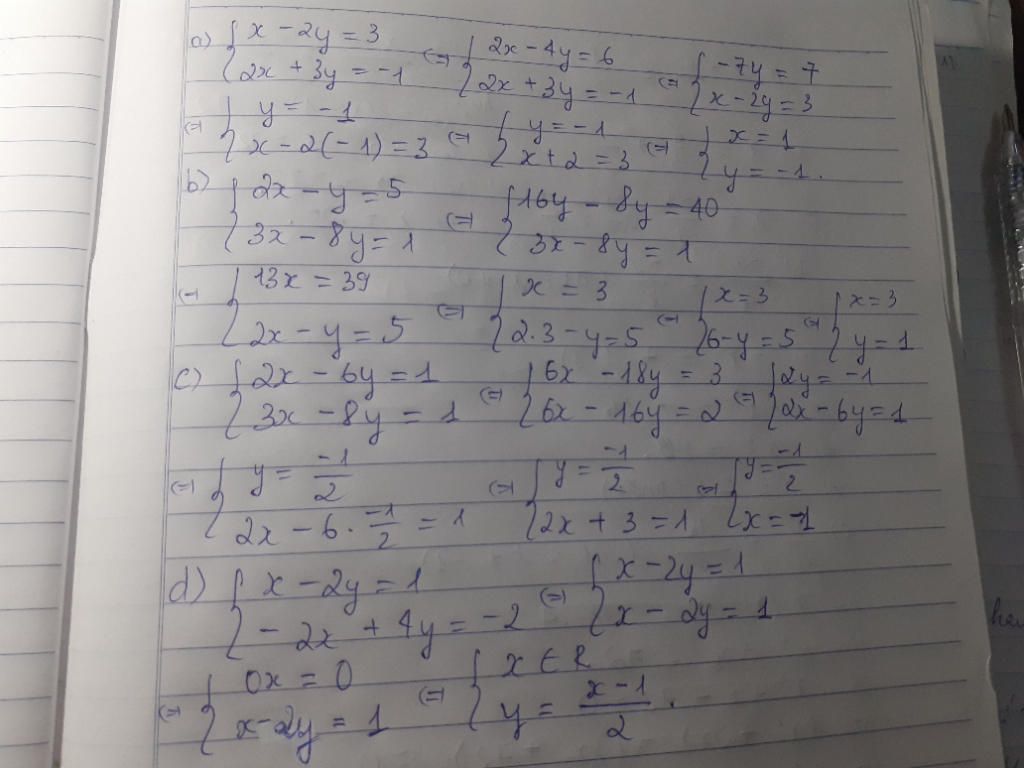 a) { x - 2y = 3 ; 2x + 3y = -1 ⇔ { 2x - 4y = 6 ; 2x + 3y = -1 ⇔ { -7y = 7 ; x - 2y = 3
⇔ { y = -1 ; x - 2(-1) = 3 ⇔ { y = -1 ; x + 2 = 3 ⇔ { x = 1 ; y = -1.
b) { 2x - y = 5 ; 3x - 8y = 1 ⇔ { 16y - 8y = 40 ; 3x - 8y = 1
⇔ { 13x = 39 ; 2x - y = 5 ⇔ { x = 3 ; 2.3 - y = 5 ⇔ { x = 3 ; 6 - y = 5 ⇔ { x = 3 ; y = 1
c) { 2x - 6y = 1 ; 3x - 8y = 1 ⇔ { 6x - 18y = 3 ; 6x - 16y = 2 ⇔ { 2y = -1 ; 2x - 6y = 1
⇔ { y = -1/2 ; 2x - 6 . -1/2 = 1 ⇔ { y = -1/2 ; 2x + 3 = 1 ⇔ { y = -1/2 ; x = -1
d) { x - 2y = 1 ; -2x + 4y = -2 ⇔ { x - 2y = 1 ; x - 2y = 1
⇔ { 0x = 0 ; x - 2y = 1 ⇔ { x ∈ R ; y = (x - 1)/2 .